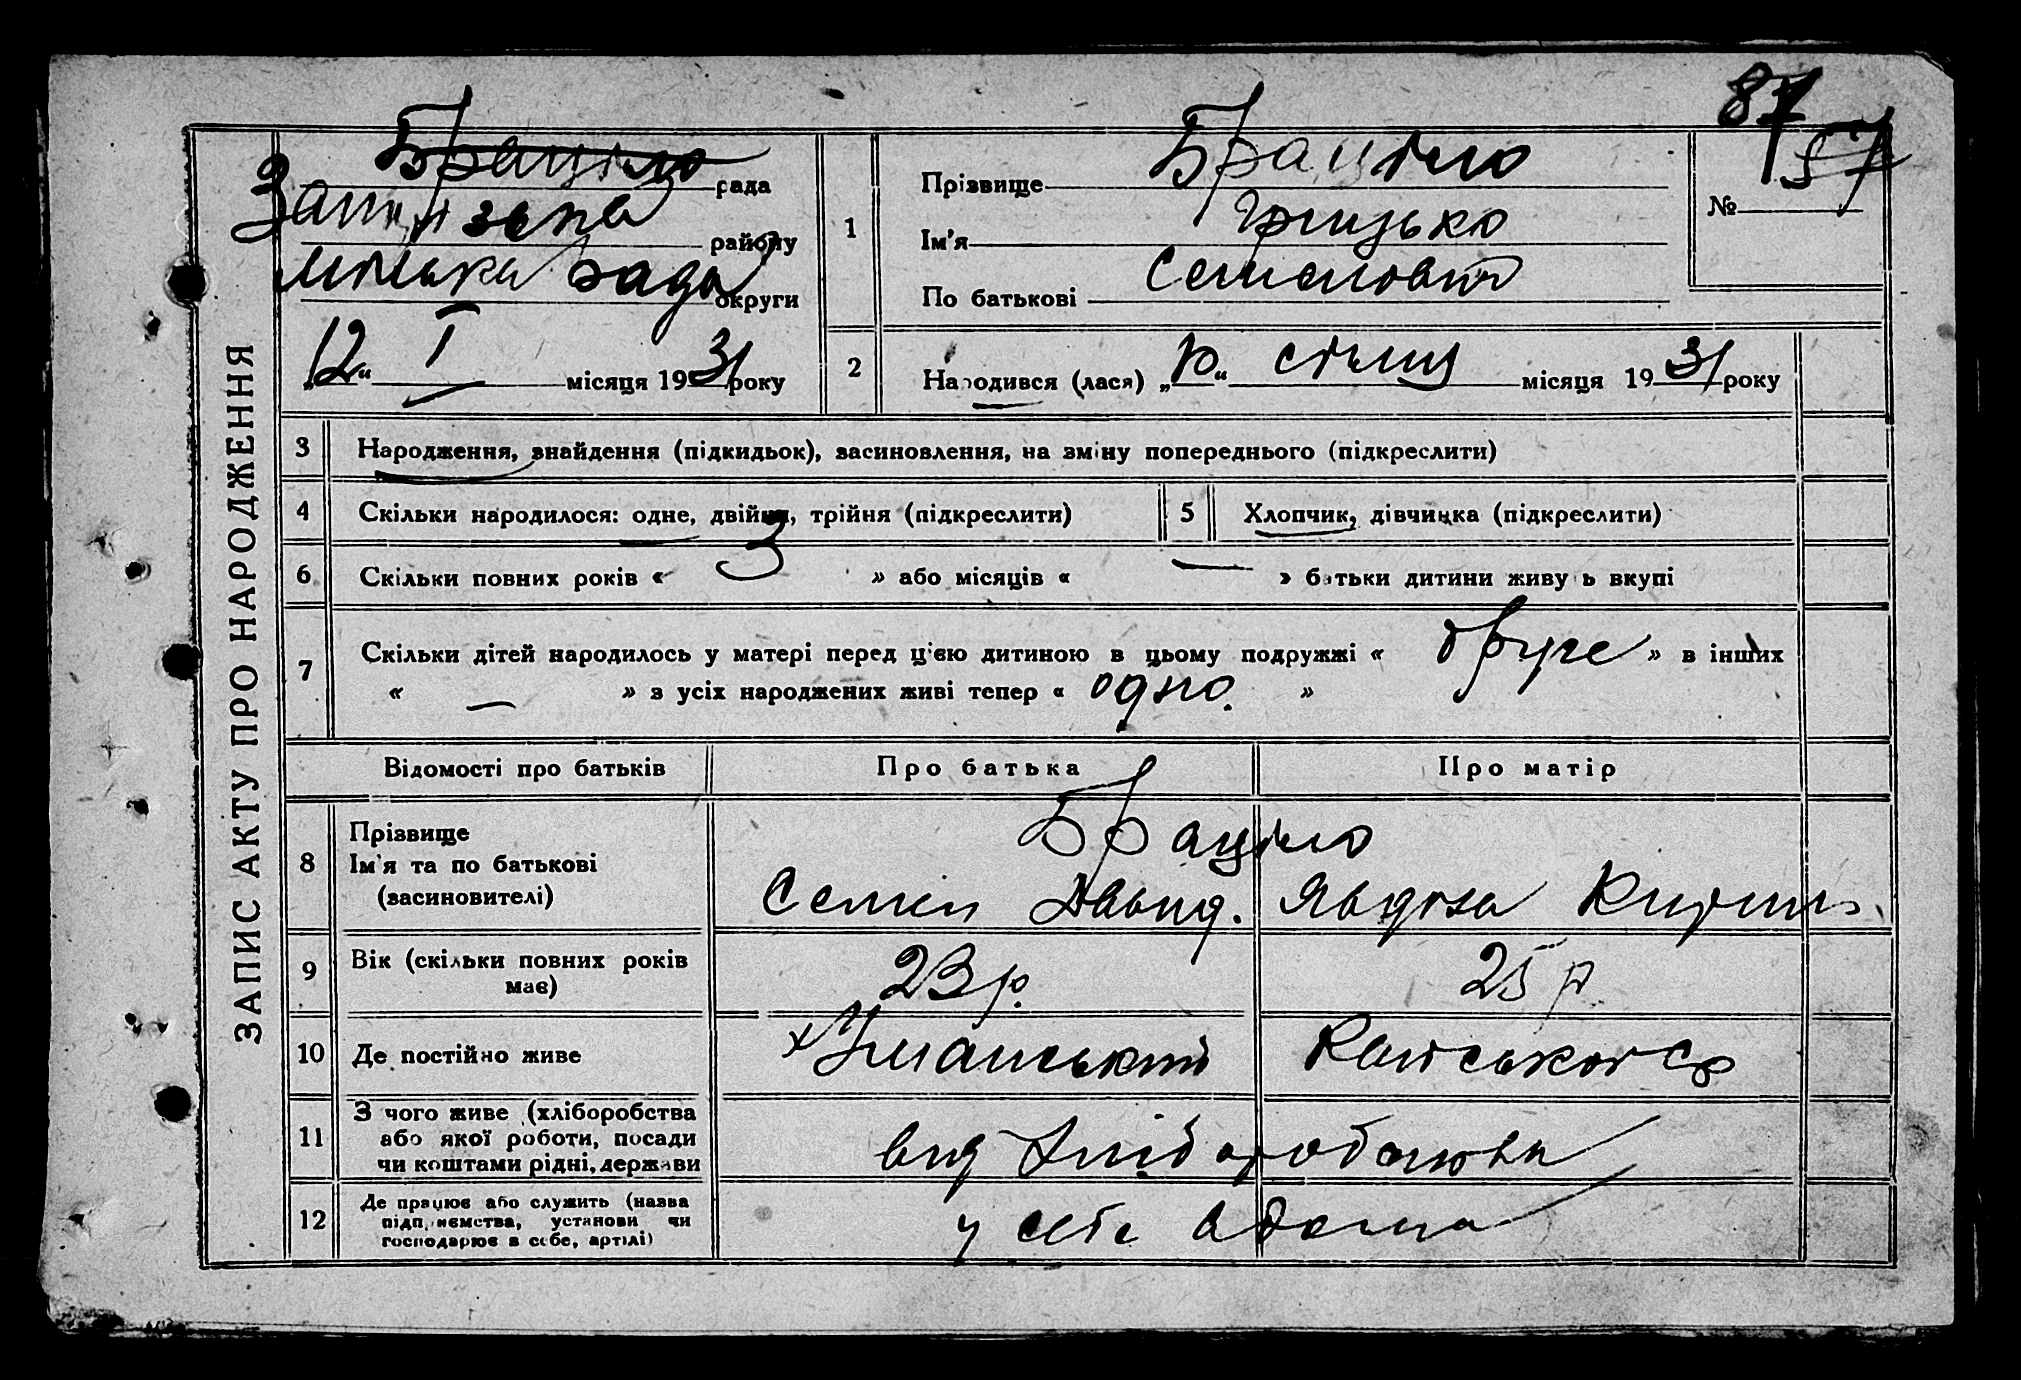 87
57
№
ЗАПИС АКТУ ПРО НАРОДЖЕННЯ
Браціло рада
району
міська рада округи
12 " I місяця 1931 року
1
Прізвище Браціло
Ім'я Грицько
По батькові Семенович
2
Народився (лася) „10" січня місяця 1931 року
3 Народження, знайдення (підкидьок), засиновлення, на зміну попереднього (підкреслити)
4 Скільки народилося: одне, двійня, трійня (підкреслити)
5 Хлопчик, дівчинка (підкреслити)
6 Скільки повних років « 3 » або місяців « — » батьки дитини живуть вкупі
7 Скільки дітей народилось у матері перед цією дитиною в цьому подружжі « друге » в інших
« — » з усіх народжених живі тепер « одно. »
Відомості про батьків Про батька Про матір
8 Прізвище
Ім'я та по батькові
(засиновителі)
Браціло
Семен Давид. Явдоха
9 Вік (скільки повних років
має)
23 р. 25 р
10 Де постійно живе
11 З чого живе (хліборобства
або якої роботи, посади
чи коштами рідні, держави
від
12 Де працює або служить (назва
підприємства, установи чи
господарює в себе, артілі)
у себе вдома